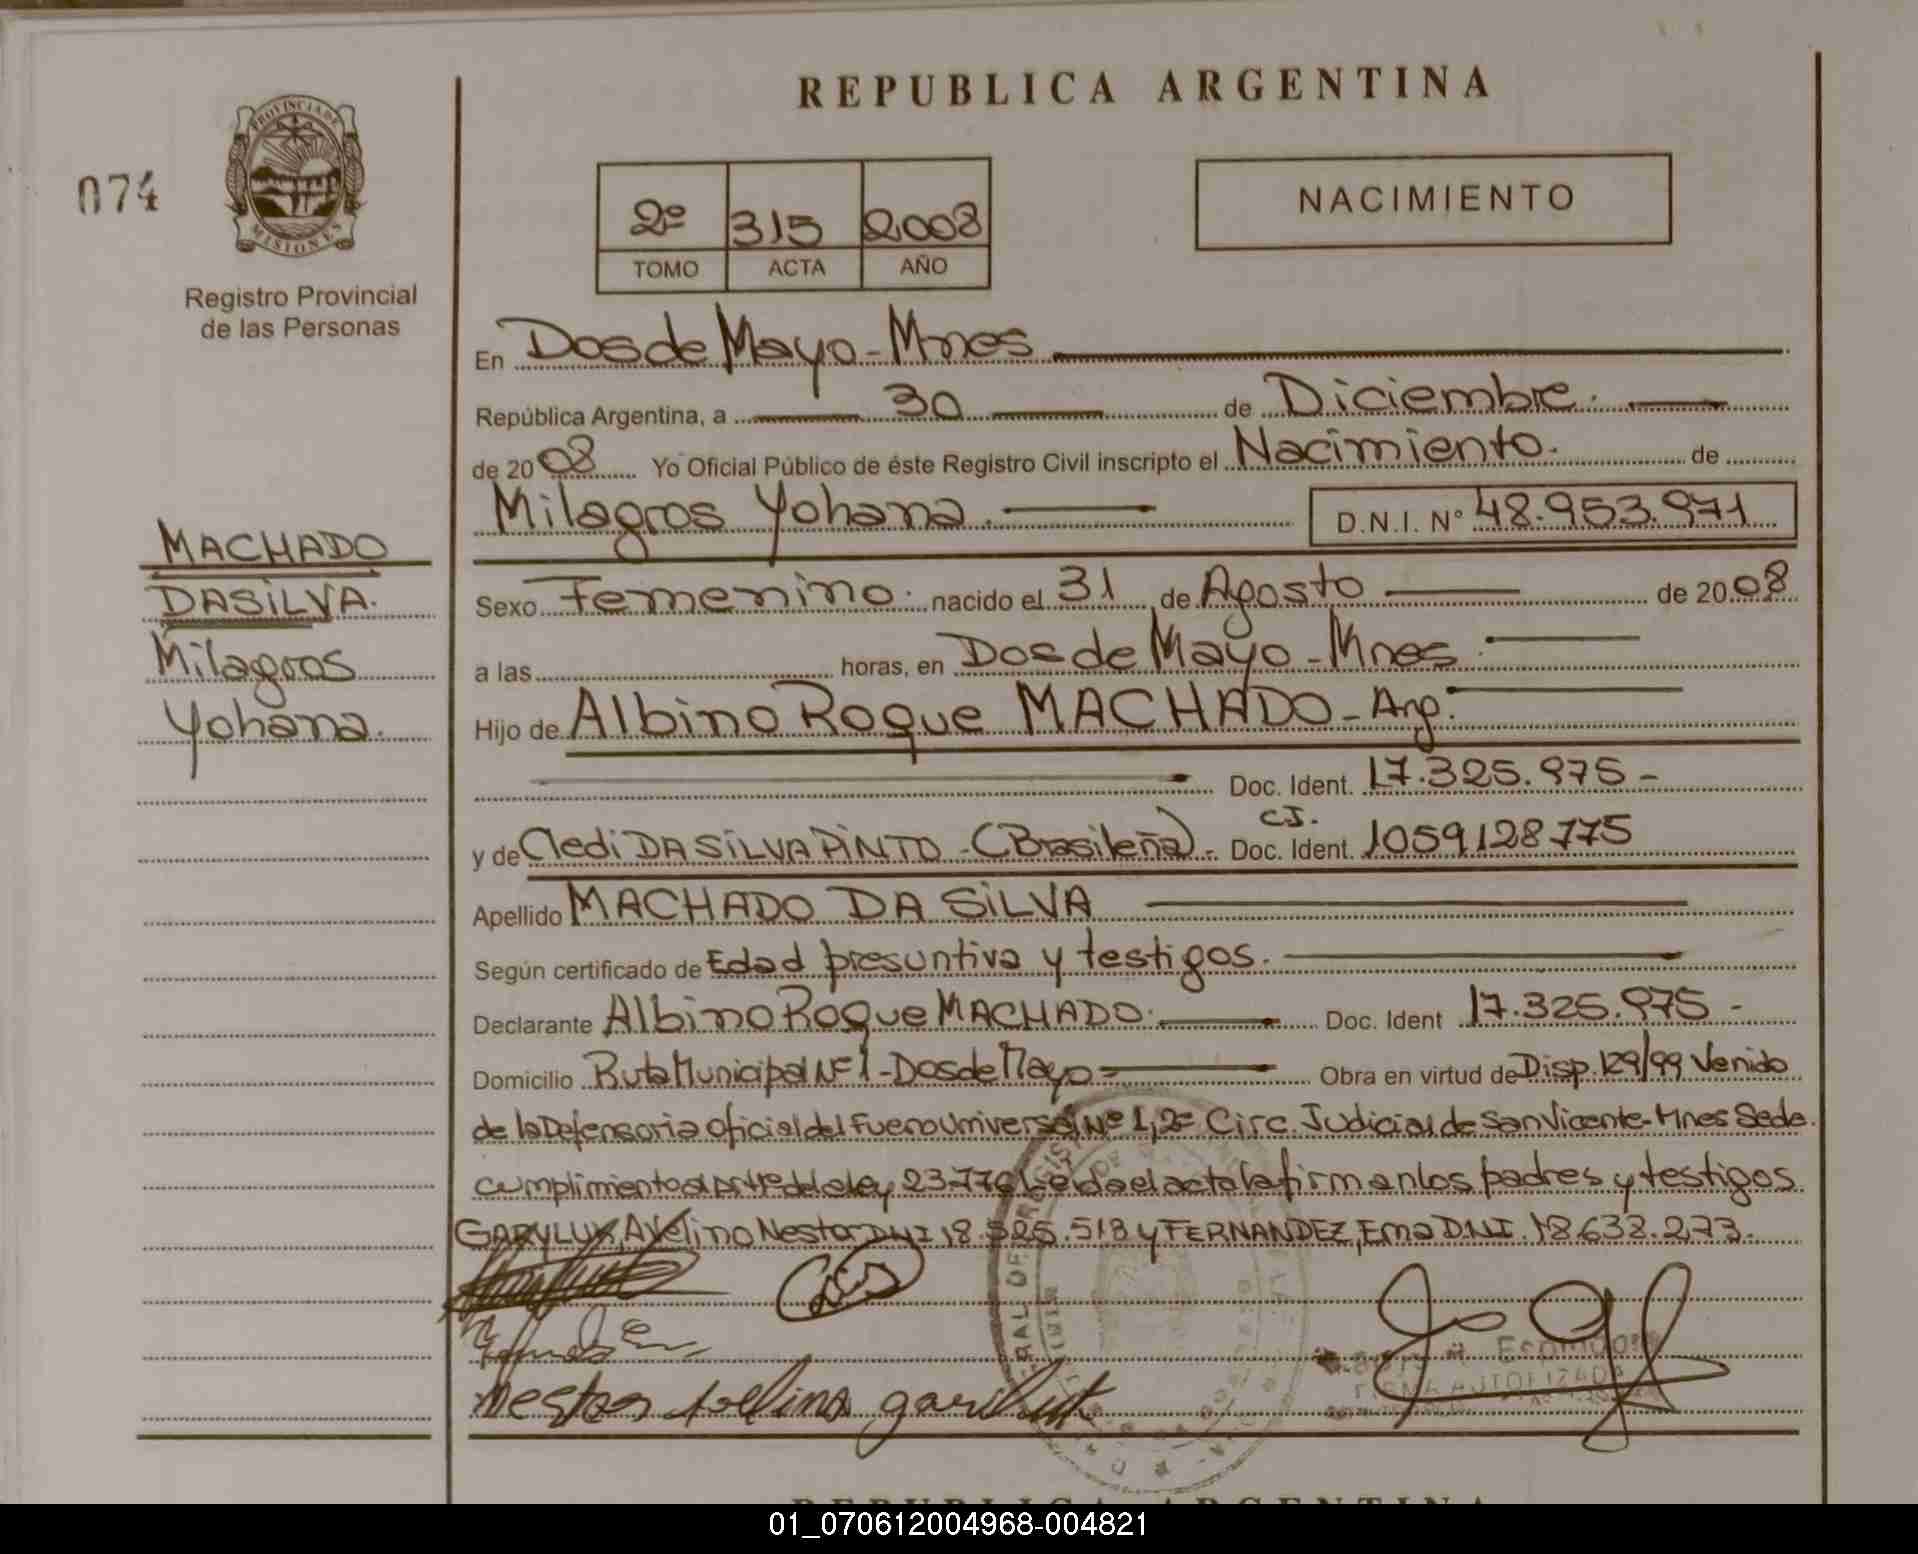 REPUBLICA ARGENTINA
074
PROVINCIA DE
MISIONES
Registro Provincial
de las Personas
2º 315 2008
TOMO ACTA AÑO
NACIMIENTO
En Dos de Mayo - Mnes
República Argentina, a 30 de Diciembre.
de 2008 Yo Oficial Público de éste Registro Civil inscripto el Nacimiento. de
Milagros Yohana. D.N.I. Nº 48.953.971
MACHADO
DASILVA.
Milagros
Yohana.
Sexo Femenino. nacido el 31 de Agosto de 2008
a las horas, en Dos de Mayo - Mnes.
Hijo de Albino Roque MACHADO - Arg.
Doc. Ident. 17.325.975 -
C.I.
y de Cledi DA SILVA PINTO - (Brasileña). - Doc. Ident. 1059128775
Apellido MACHADO DA SILVA
Según certificado de Edad presuntiva y testigos.
Declarante Albino Roque MACHADO. Doc. Ident 17.325.975 -
Domicilio Ruta Municipal Nº 1 - Dos de Mayo = Obra en virtud de Disp. 129/99 Venido
de la Defensoria oficial del Fuero Universal Nº 1, 2º Circ. Judicial de San Vicente - Mnes Se da
cumplimiento al del a ley Leida el acta la firman los padres y testigos
GARYLUK, Avelino Nestor DNI 18.525.513 y FERNANDEZ, Ema D.N.I. 18.638.273.
FIRMA AUTORIZADA
REPUBLICA ARGENTINA
01_070612004968-004821